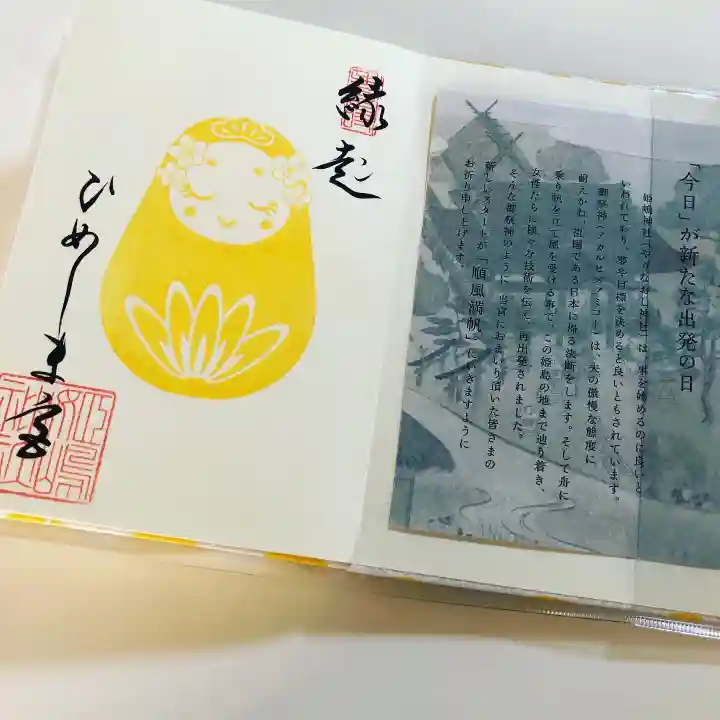 縁起
ひめしま宮
「今日」が新たな出発の日
姫嶋神社(やりなおし神社)は、事を始めるのに良いと
いわれており、夢や目標を決めると良いともされています。
御祭神(アカルヒメノミコト)は、夫の傲慢な態度に
耐えかね、祖国である日本に帰る決断をします。そして舟に
乗り帆を立て風を受ける事で、この姫島の地まで辿り着き、
女性たちに様々な技術を伝え、再出発されました。
そんな御祭神のように、当宮におまいり頂いた皆さまの
新しいスタートが「順風満帆」にいきますように
お祈り申し上げます。